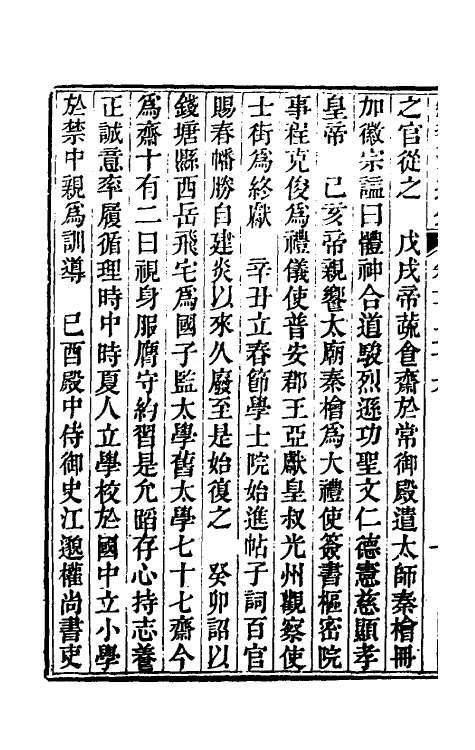 之官從之　戊戌帝蔬食齋於常御殿遣太師秦檜冊
加徽宗諡曰體神合道駿烈遜功聖文仁德憲慈顯孝
皇帝　己亥帝親饗太廟秦檜爲大禮使簽書樞密院
事程克俊爲禮儀使普安郡王亞獻皇叔光州觀察使
士街爲終獻　辛丑立春節學士院始進帖子詞百官
賜春幡勝自建炎以來久廢至是始復之　癸卯詔以
錢塘縣西岳飛宅爲國子監太學舊太學七十七齋今
爲齋十有二曰視身服膺守約習是允蹈存心持志養
正誠意率履循理時中時夏人立學校於國中立小學
於禁中親爲訓導　己酉殿中侍御史江邈權尚書吏